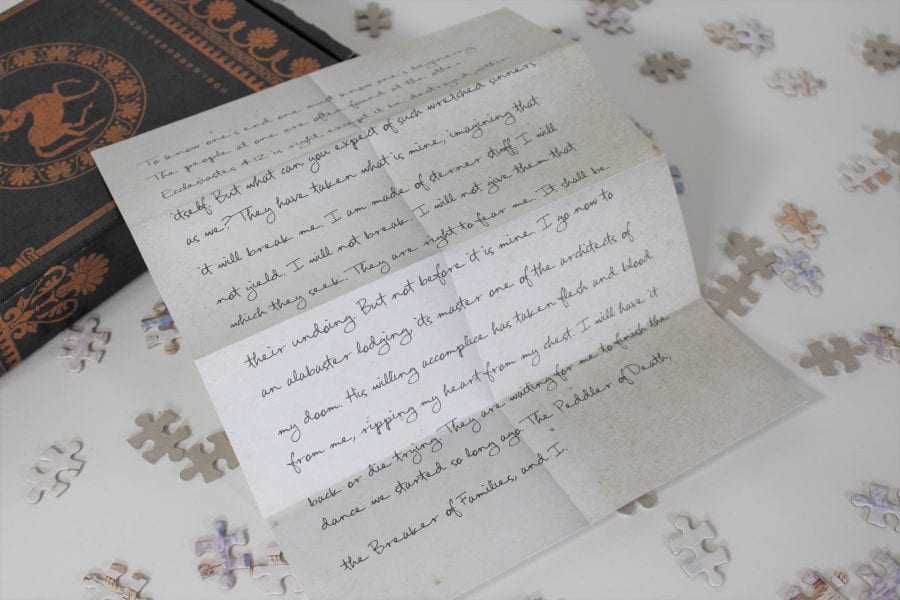 To know one's end one must know one's beginning
The people at one are often found at the other
Ecclesiastes 4:12 is right, except it be destroyed within
itself. But what can you expect of such wretched sinners
as we? They have taken what is mine, imagining that
it will break me. I am made of sterner stuff. I will
not yield. I will not break. I will not give them that
which they seek. They are right to fear me. It shall be
their undoing. But not before it is mine. I go now to
an alabaster lodging its master one of the architects of
my doom. His willing accomplice has taken flesh and blood
from me, ripping my heart from my chest. I will have it
back or die trying. They are waiting for me to finish the
dance we started so long ago. The Peddler of Death,
the Breaker of Families, and I.